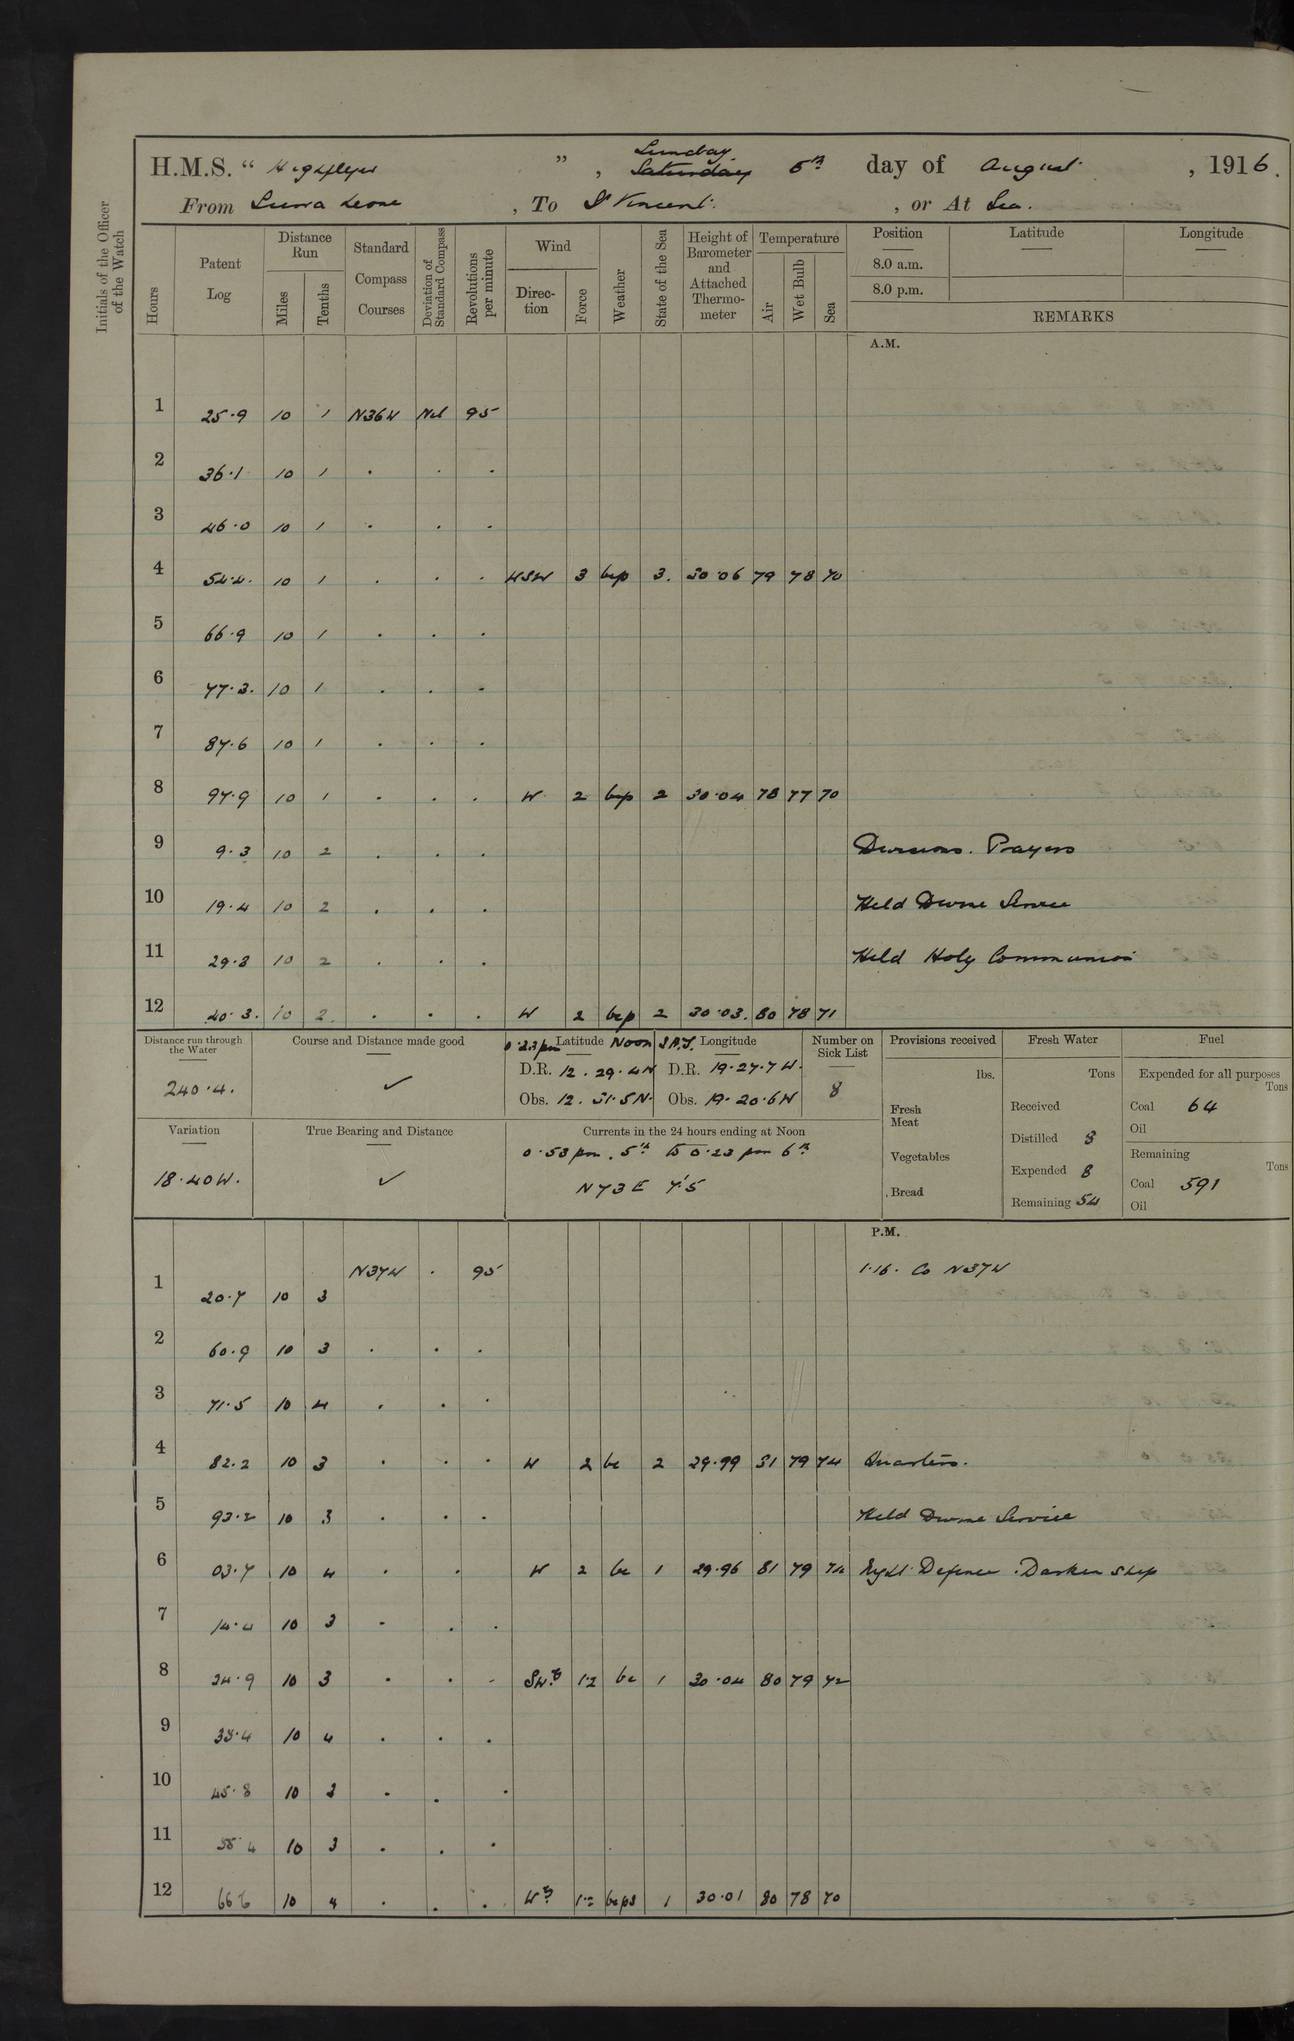 Sunday
H.M.S. " Highflyer ", Saturday 6th day of August, 1916.
From Sierra Leone, To St Vincent. , or At Sea.
Initials of the Officer of the Watch
Hours Patent Log Distance Run Miles Tenths Standard Compass Courses Deviation of Standard Compass Revolutions per minute Wind Direction Force Weather State of the Sea Height of Barometer and Attached Thermometer Temperature Air Wet Bulb Sea Position Latitude Longitude
8.0 a.m.
8.0 p.m.
REMARKS
A.M.
1 25.9 10 1 N36W Nil 95
2 36.1 10 1 . . .
3 46.0 10 1 . . .
4 54.4. 10 1 . . . WSW 3 bcp 3. 30.06 79 78 70
5 66.9 10 1 . . .
6 77.3. 10 1 . . .
7 87.6 10 1 . . .
8 97.9 10 1 . . . W 2 bcp 2 30.04 78 77 70
9 9.3 10 2 . . . Divisions. Prayers
10 19.4 10 2 . . . Held Divine Service
11 29.8 10 2 . . . Held Holy Communion
12 40.3. 10 2. . . . W 2 bcp 2 30.03. 80 78 71
Distance run through the Water Course and Distance made good 0.23 pm Latitude Noon S.A.T. Longitude Number on Sick List Provisions received Fresh Water Fuel
240.4. ✓ D.R. 12.29.4N D.R. 19.27.7W. 8 lbs. Tons Expended for all purposes Tons
Obs. 12.31.5N. Obs. 19.20.6W Fresh Meat Received Coal 64
Oil
Variation True Bearing and Distance Currents in the 24 hours ending at Noon Distilled 8 Remaining Tons
0.53 pm. 5th to 0.23 pm 6th Vegetables Expended 8
18.40W. ✓ N73E 7'.5 Bread Remaining 54 Coal 591
Oil
P.M.
1 20.7 10 3 N37W . 95 1.16. Co N37W
2 60.9 10 3 . . .
3 71.5 10 4 . . .
4 82.2 10 3 . . . W 2 bc 2 29.99 81 79 74 Quarters.
5 93.2 10 3 . . . Held Divine Service
6 03.7 10 4 . . W 2 bc 1 29.96 81 79 74 Night Defence. Darken Ship
7 14.4 10 3 . . .
8 24.9 10 3 . . . SW.b 1.2 bc 1 30.04 80 79 72
9 35.4 10 4 . . .
10 45.8 10 3 . . .
11 4 10 3 . . .
12 66 6 10 4 . . . 1.2 bcps 1 30.01 80 78 70